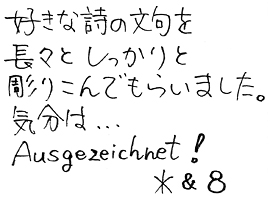 好きな詩の文句を
長々と しっかりと
彫りこんでもらいました。
気分は…
Ausgezeichnet!
* & 8